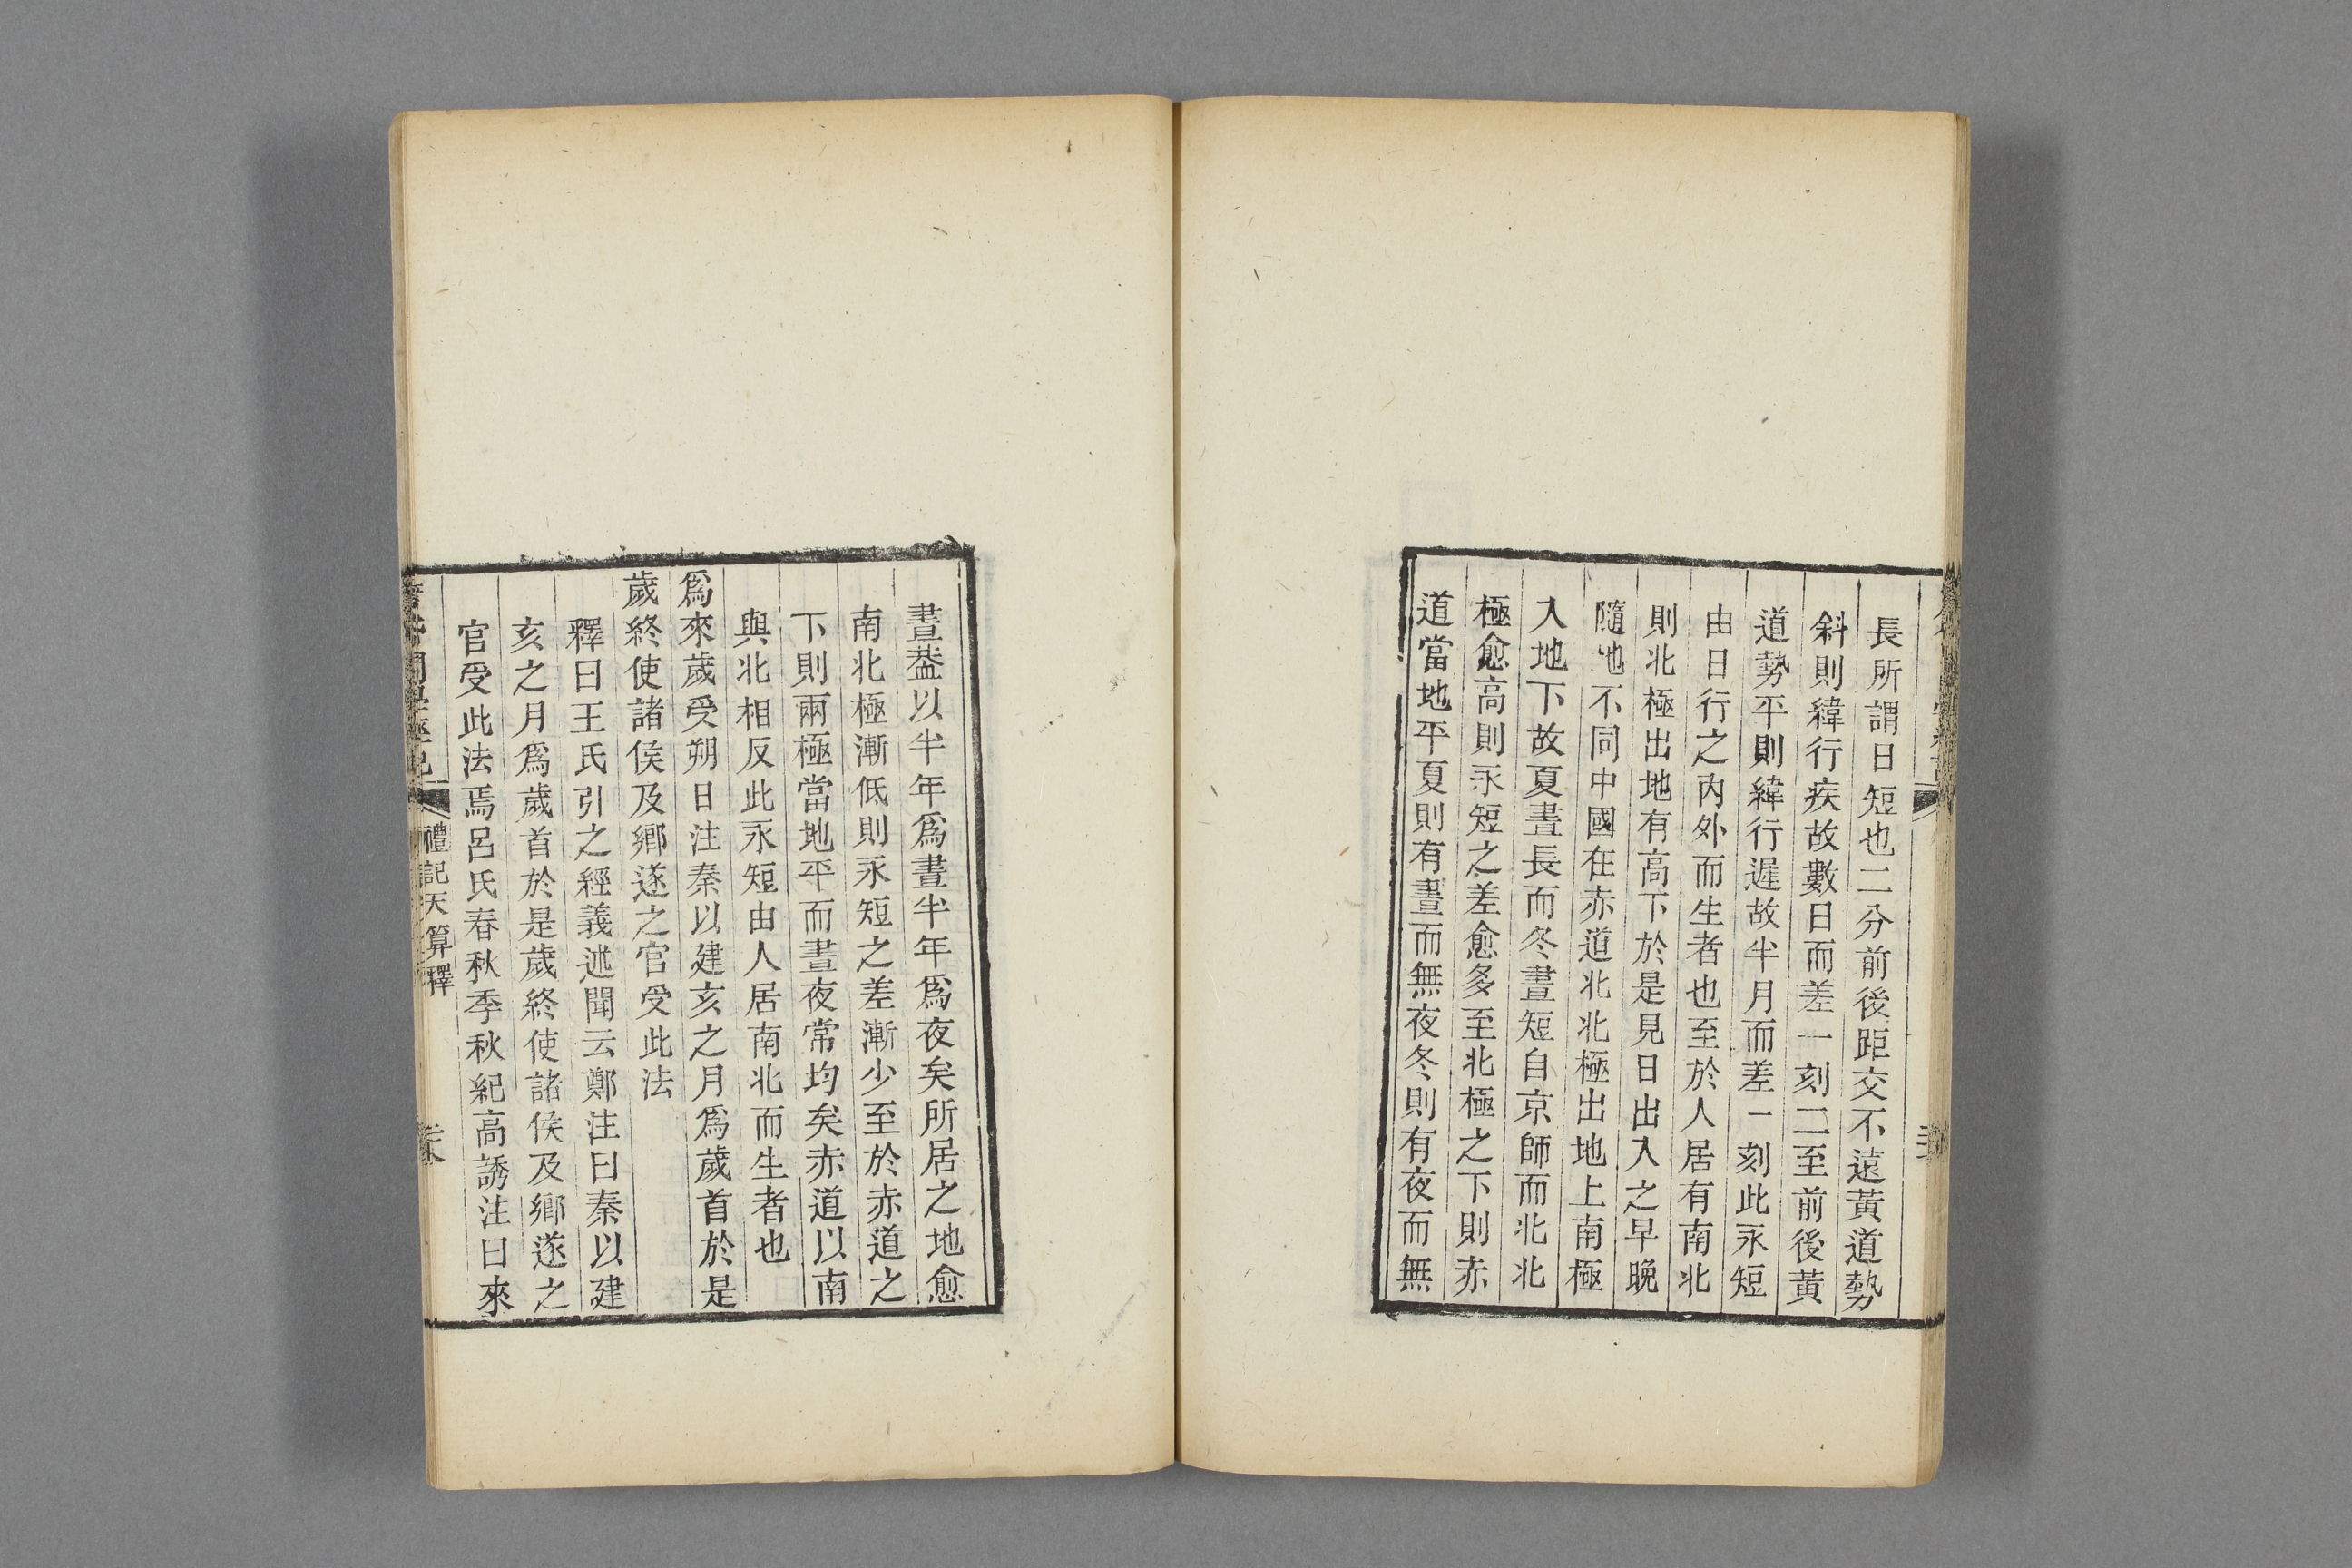 長所謂日短也二分前後距交不遠黃道勢
斜則緯行疾故數日而差一刻二至前後黃
道勢平則緯行遲故半月而差一刻此永短
由日行之內外而生者也至於人居有南北
則北極出地有高下於是見日出入之早晚
隨地不同中國在赤道北北極出地上南極
入地下故夏晝長而冬晝短自京師而北北
極愈高則永短之差愈多至北極之下則赤
道當地平夏則有晝而無夜冬則有夜而無
晝葢以半年爲晝半年爲夜矣所居之地愈
南北極漸低則永短之差漸少至於赤道之
下則兩極當地平而晝夜常均矣赤道以南
與北相反此永短由人居南北而生者也
爲來歲受朔日注秦以建亥之月爲歲首於是
歲終使諸侯及鄉遂之官受此法
釋曰王氏引之經義述聞云鄭注曰秦以建
亥之月爲歲首於是歲終使諸侯及鄉遂之
官受此法焉呂氏春秋季秋紀高誘注曰來
禮記天算釋